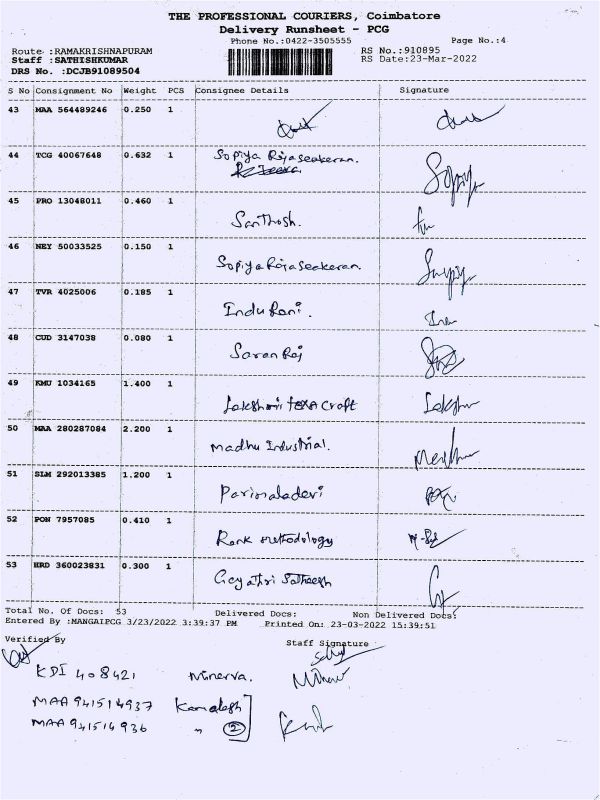 THE PROFESSIONAL COURIERS, Coimbatore
Delivery Runsheet - PCG
Phone No.:0422-3505555 Page No.:4
Route :RAMAKRISHNAPURAM RS No.:910895
Staff :SATHISHKUMAR RS Date:23-Mar-2022
DRS No. :DCJB91089504
S No Consignment No Weight PCS Consignee Details Signature
43 MAA 564489246 0.250 1
44 TCG 40067648 0.632 1 Sopiya Rajaseakeran.
45 PRO 13048011 0.460 1 Santhosh.
46 NEY 50033525 0.150 1 Sopiya Rajaseakeran.
47 TVR 4025006 0.185 1 Indu Rani.
48 CUD 3147038 0.080 1 Saran Raj
49 KMU 1034165 1.400 1 Lakshmi Craft
50 MAA 280287084 2.200 1 Madhu Industrial.
51 SLM 292013385 1.200 1 Parimaladevi
52 PON 7957085 0.410 1 Rank Methodology
53 HRD 360023831 0.300 1 Gayathri Satheesh
Total No. Of Docs: 53 Delivered Docs: Non Delivered Docs:
Entered By :MANGAIPCG 3/23/2022 3:39:37 PM Printed On: 23-03-2022 15:39:51
Verified By Staff Signature
KDI 408421 Minerva.
MAA 941514937 Kamalesh
MAA 941514936 " 2